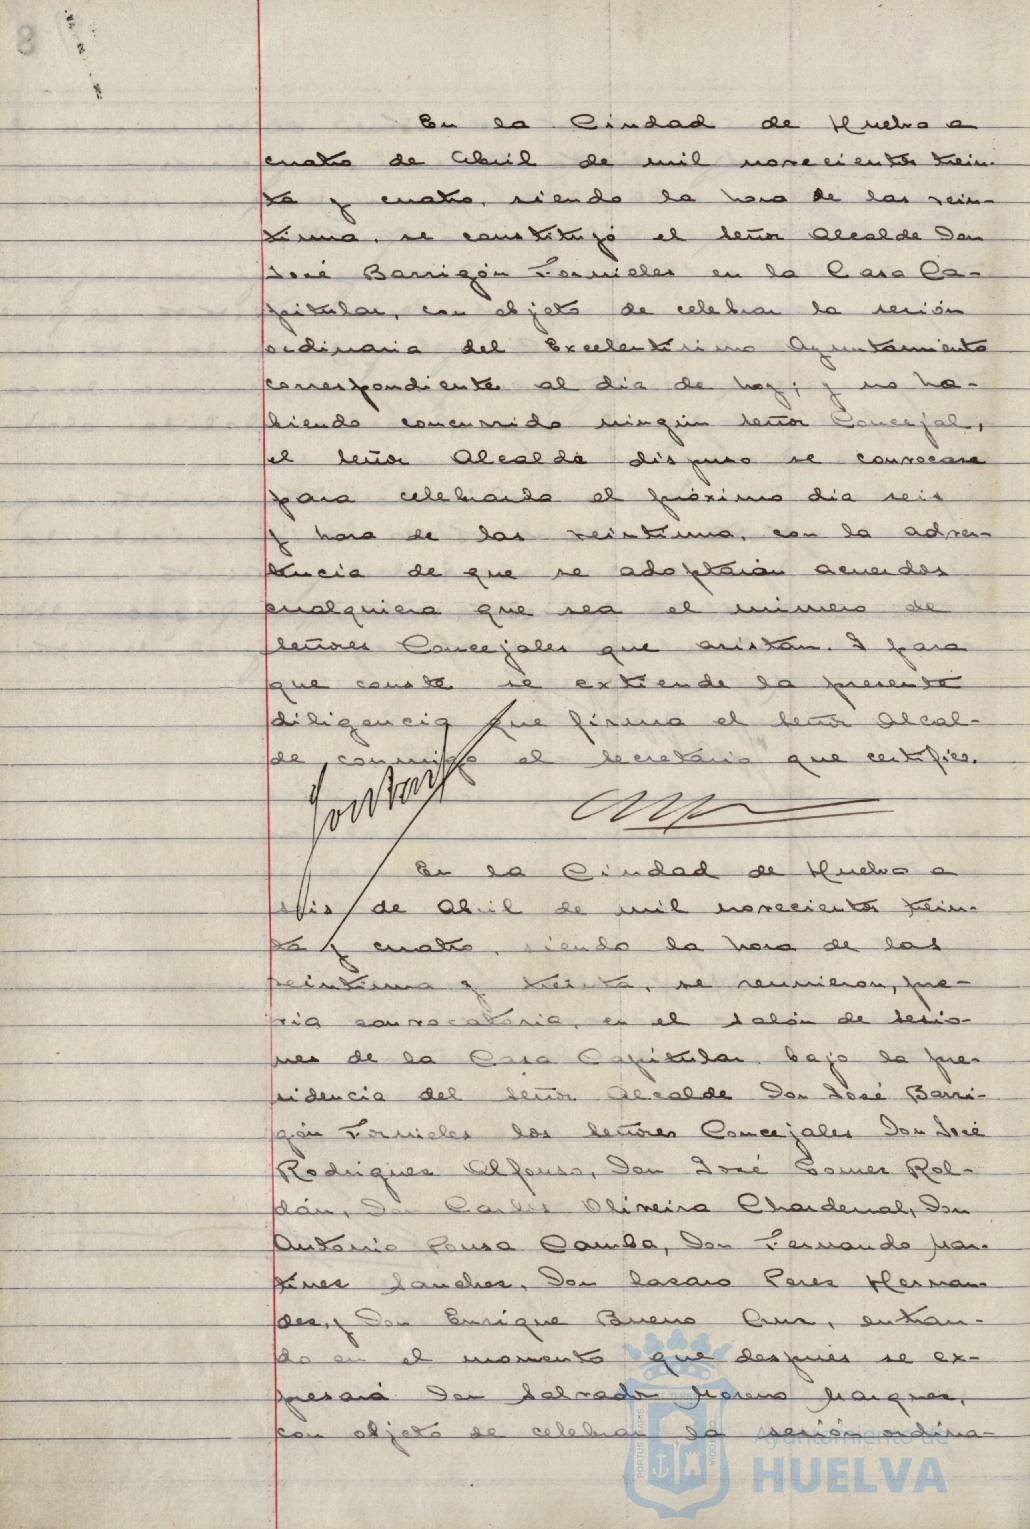 En la Ciudad de Huelva a
cuatro de Abril de mil novecientos trein-
ta y cuatro, siendo la hora de las vein-
tiuna, se constituyó el Señor Alcalde Don
José Barrigón Fornieles en la Casa Ca-
pitular, con objeto de celebrar la sesión
ordinaria del Excelentisimo Ayuntamiento
correspondiente al dia de hoy; y no ha-
biendo concurrido ningún Señor Concejal,
el Señor Alcalde dispuso se convocara
para celebrarla el próximo dia seis
y hora de las veintiuna, con la adver-
tencia de que se adoptarán acuerdos
cualquiera que sea el número de
Señores Concejales que asistan. Y para
que conste se extiende la presente
diligencia que firma el Señor Alcal-
de conmigo el Secretario que certifico.
En la Ciudad de Huelva a
seis de Abril de mil novecientos trein-
ta y cuatro, siendo la hora de las
veintiuna y treinta, se reunieron, pre-
via convocatoria, en el Salón de Sesio-
nes de la Casa Capitular bajo la pre-
sidencia del Señor Alcalde Don José Barri-
gón Fornieles los Señores Concejales Don José
Rodriguez Alfonso, Don José Gomez Rol-
dán, Don Carlos Oliveira Chardenal, Don
Antonio Pousa Camba, Don Fernando Mar-
tinez Sanchez, Don Lazaro Perez Hernan-
dez, y Don Enrique Bueno Cruz, entran-
do en el momento que despues se ex-
presará Don Salvador Moreno Marquez,
con objeto de celebrar la sesión ordina-
Ayuntamiento de
HUELVA